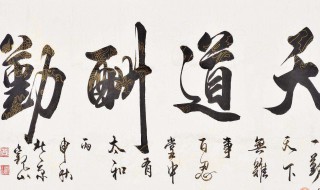 天道酬勤
一勤
天下
無難
事
百忍
堂中
有
太和
丙
申秋